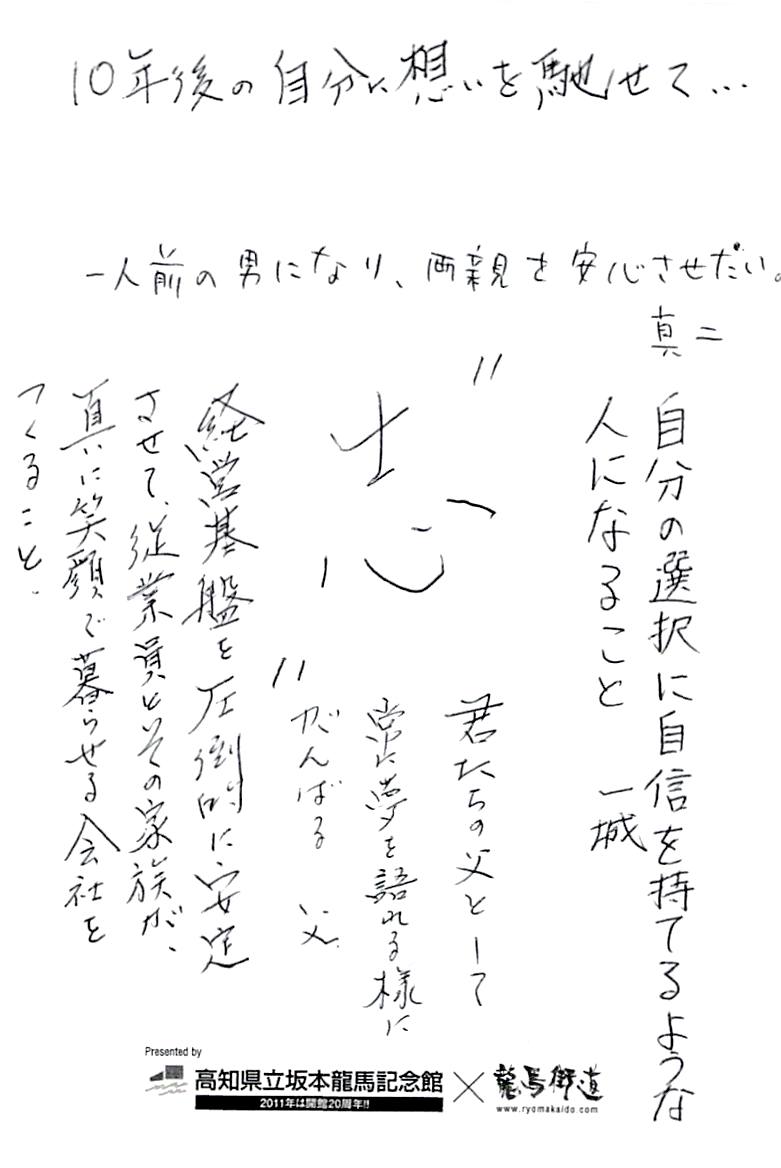 10年後の自分に想いを馳せて...
一人前の男になり、両親を安心させたい。
真二
自分の選択に自信を持てるような
人になること 一城
"志"
君たちの父として
常に夢を語れる様に
がんばる 父.
経営基盤を圧倒的に安定
させて、従業員とその家族が、
真に笑顔で暮らせる会社を
つくること.
Presented by
高知県立坂本龍馬記念館×龍馬街道
2011年は開館20周年!!
www.ryomakaido.com